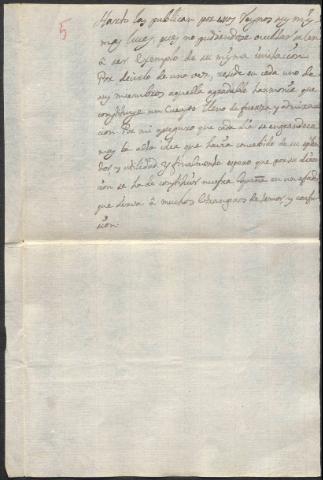 5
Harto las publican por
muy luces, pues no pudiendose ocultar
á ser Exemplo de su misma imitacion.
Por decirlo de una vez, reside en cada uno de
sus miembros aquella agradable harmonia que
constituye un Cuerpo lleno de fuerza, y admira
cion. Por mi aseguro que cada dia se engrandece
mas la alta idea que havia concebido de su esplen
dor y utilidad, y finalmente espero que por su
cion se ha de constituir nuestra España en un estado
que sirva á muchos Estrangeros de temor, y confu
sion.